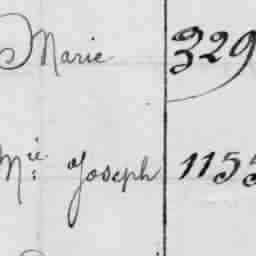 Marie 329
Mie: Joseph 1155